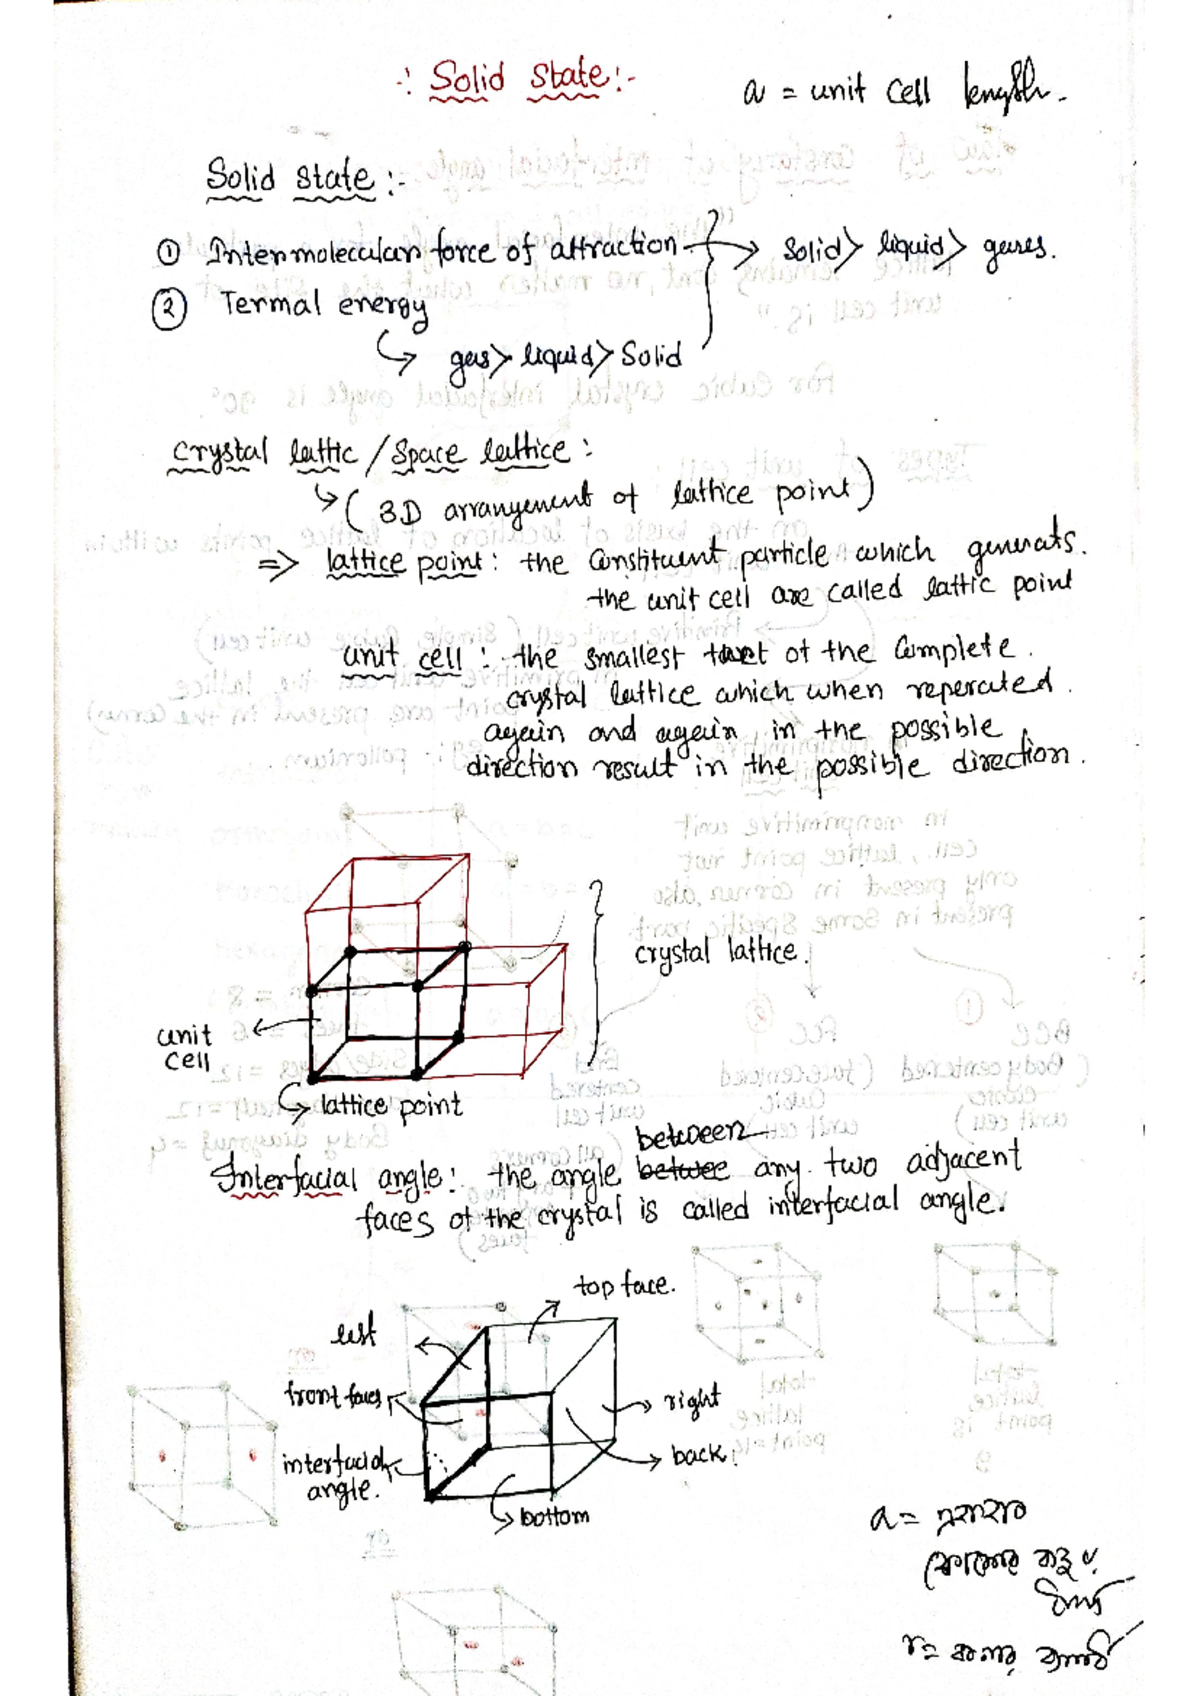 ∴ Solid State:-
a = unit cell length.
Solid state :-
① Intermolecular force of attraction → Solid > liquid > gases.
② Termal energy
↳ gas > liquid > Solid
crystal lattic / Space lattice :
↳ ( 3D arrangement of lattice point )
=> lattice point : the Constituent particle which generats.
the unit cell are called lattic point
unit cell : the smallest of the Complete.
crystal lattice which when reperated.
again and again in the possible
direction result in the possible direction.
crystal lattice.
unit
cell
↳ lattice point
between
Interfacial angle : the angle betwee any two adjacent
faces of the crystal is called interfacial angle.
top face.
front faces
right
interfacial
angle.
back
bottom
a =
r =